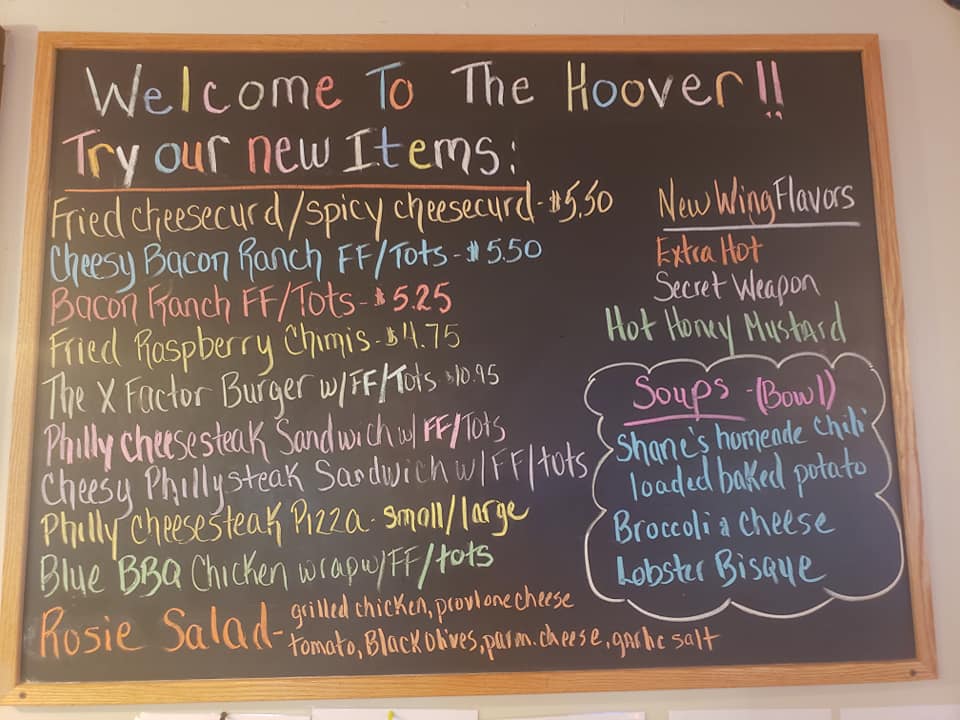 Welcome To The Hoover!!
Try our new Items:
Fried cheesecurd/spicy cheesecurd-$5.50
Cheesy Bacon Ranch FF/Tots-$5.50
Bacon Ranch FF/Tots-$5.25
Fried Raspberry Chimis-$4.75
The X Factor Burger w/FF/Tots $10.95
Philly cheesesteak Sandwich w/ FF/Tots
Cheesy Phillysteak Sandwich w/FF/tots
Philly cheesesteak Pizza-small/large
Blue BBQ Chicken wrap w/FF/tots
Rosie Salad-grilled chicken, provlone cheese
tomato, Black olives, parm. cheese, garlic salt
New Wing Flavors
Extra Hot
Secret Weapon
Hot Honey Mustard
Soups -(Bowl)
Shane's homeade chili
loaded baked potato
Broccoli & cheese
Lobster Bisque